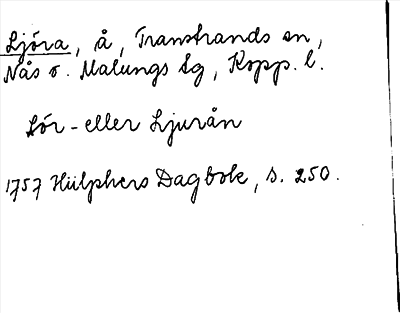 Ljöra, å, Transtrands sn,
Nås o. Malungs tg, Kopp. l.
Lör- eller Ljurån
1757 Hülphers Dagbok, s. 250.